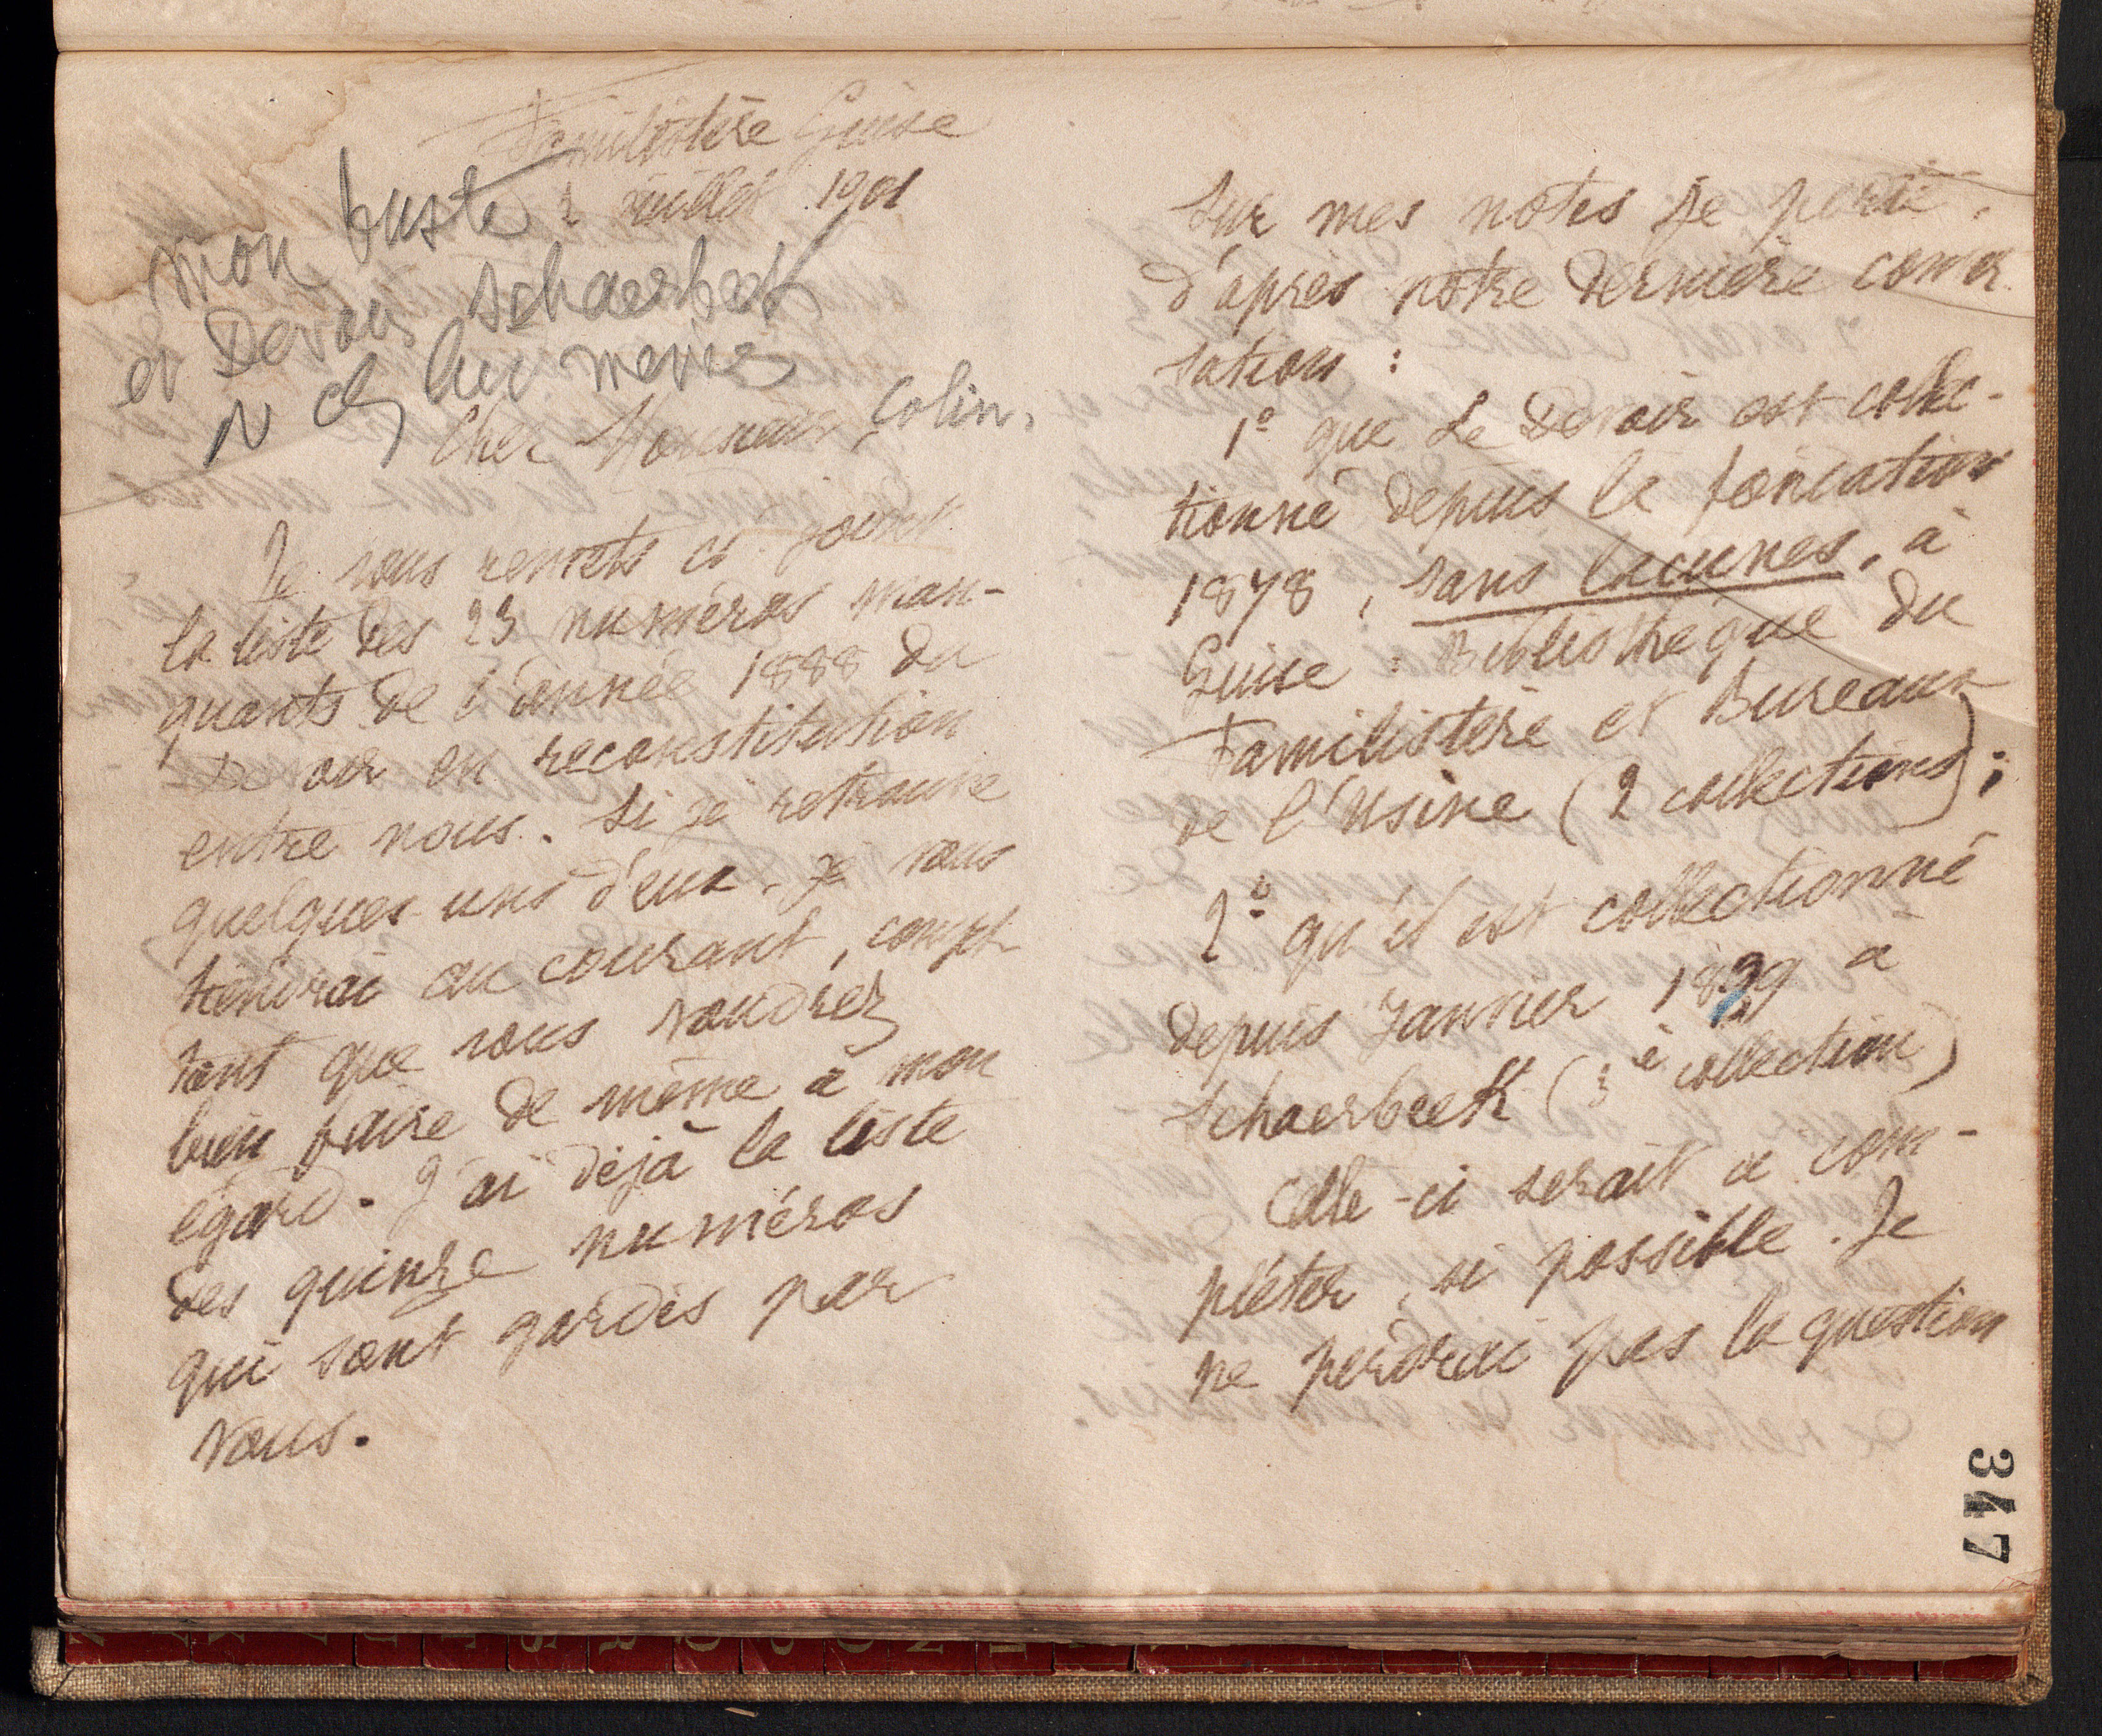 Familistère Guise
2 juillet 1901
mon buste
et Devoir Schaerbeek
chez lui même
Cher Monsieur Colin,
Je vous remets ci-joint
la liste des 23 numéros man-
quants de l'année 1888 du
Devoir en reconstitution
entre nous. Si je retrouve
quelques uns d'eux, je vous
tiendrai au courant, comp-
tant que vous voudrez
bien faire de même à mon
égard. J'ai déjà la liste
des quinze numéros
qui sont gardés par
vous.
Sur mes notes je porte,
d'après notre dernière conver-
sation :
1° que Le Devoir est collec-
tionné depuis la fondation
1878, sans lacunes, à
Guise : Bibliothèque du
Familistère et Bureaux
de l'Usine (2 collections) ;
2° qu'il est collectionné
depuis Janvier 1899 à
Schaerbeek (3e collection)
Celle-ci serait à com-
pléter, si possible. Je
ne perdrai pas la question
347